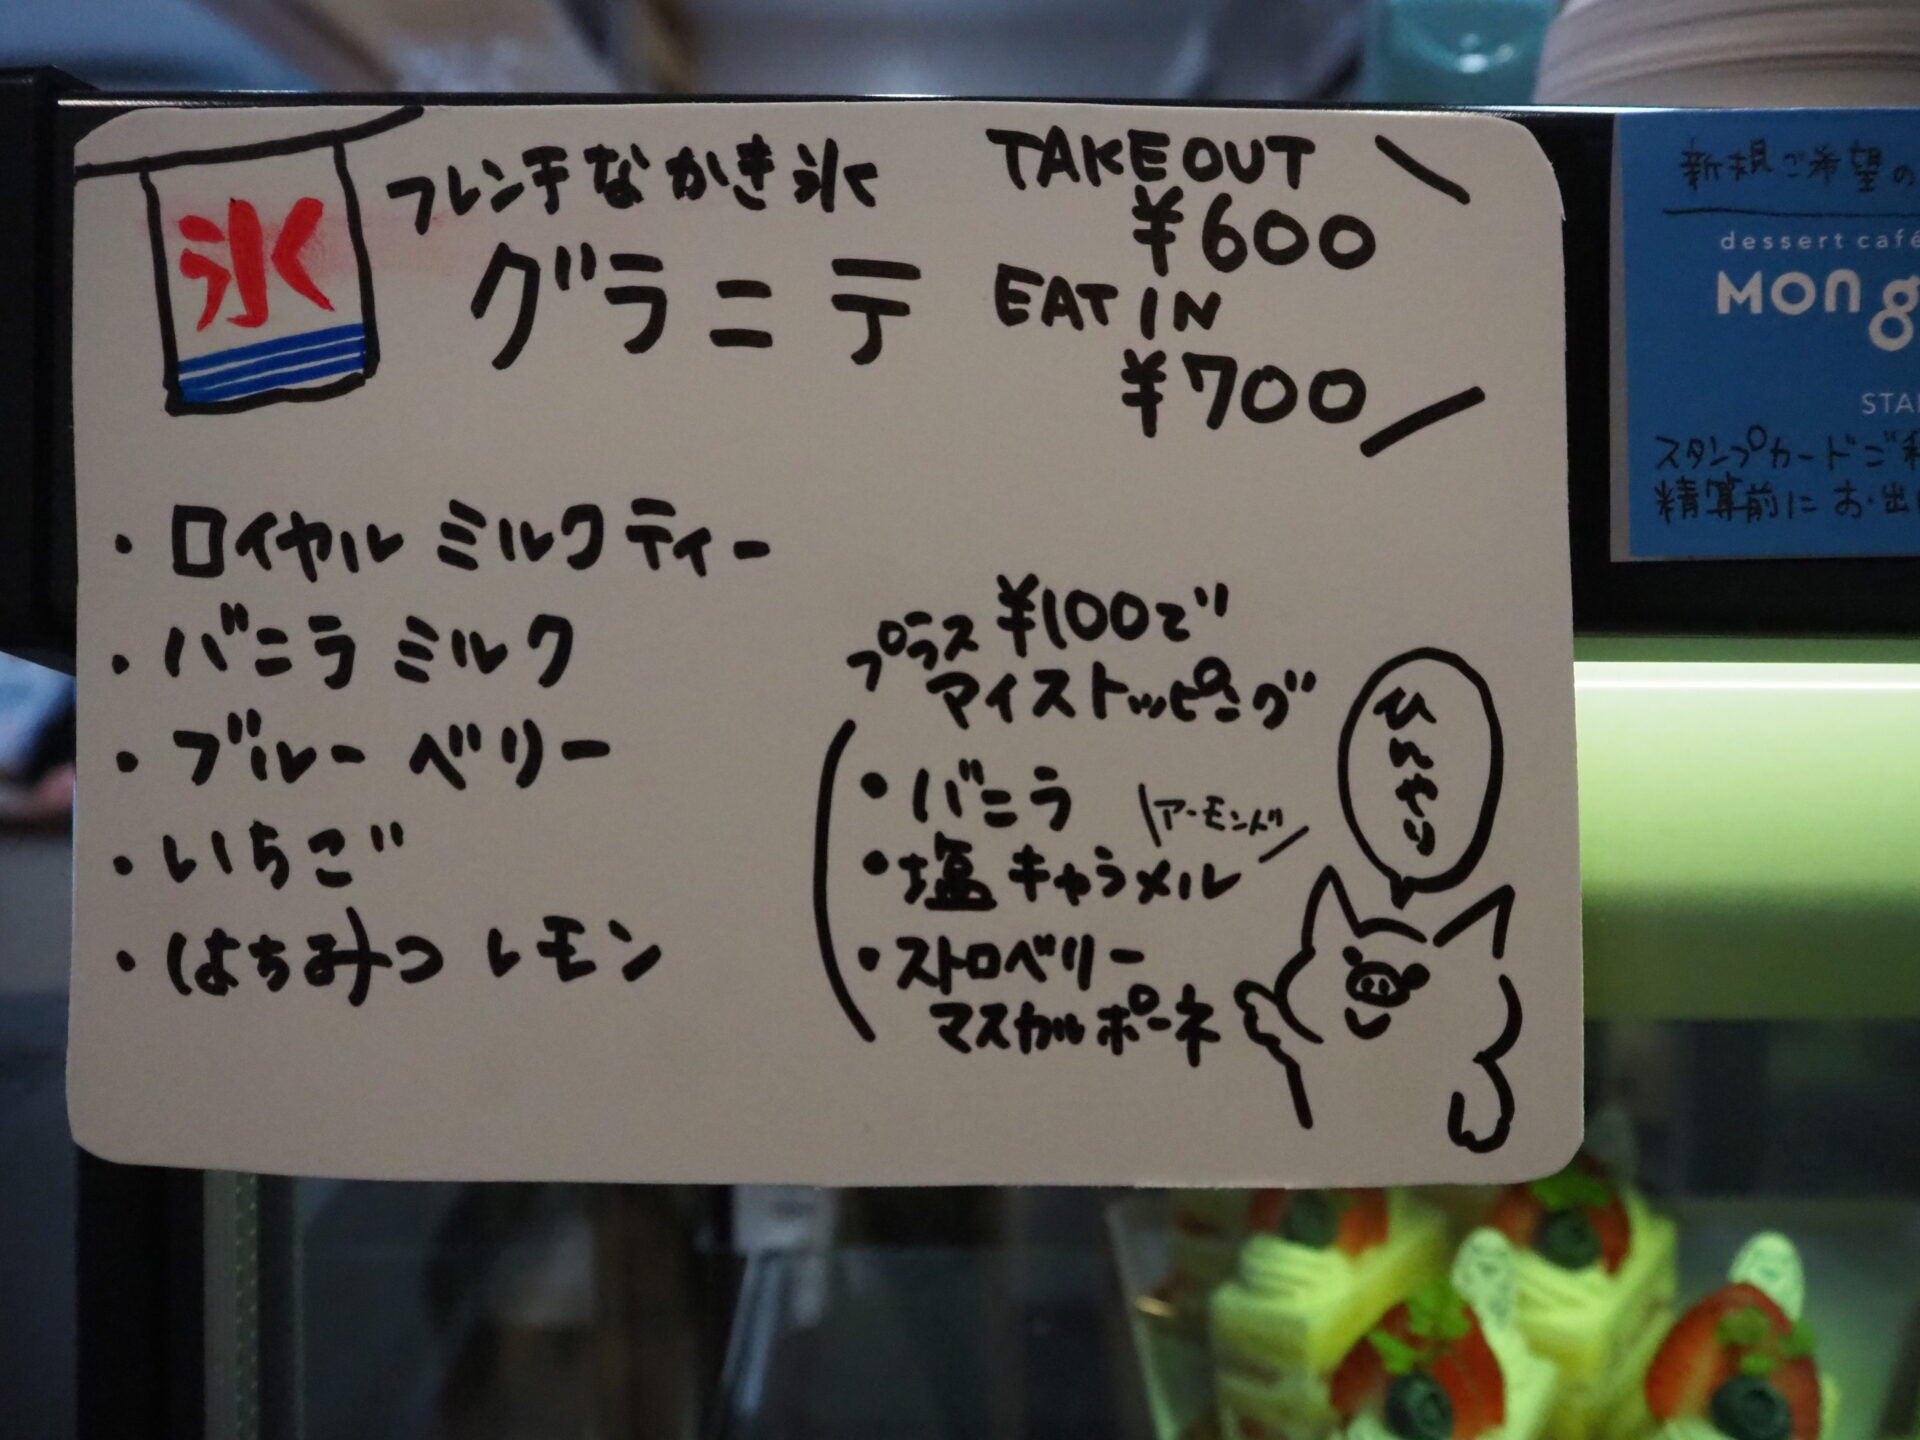 氷
フレンチなかき氷
グラニテ
TAKEOUT
¥600
EAT IN
¥700
・ロイヤルミルクティー
・バニラミルク
・ブルーベリー
・いちご
・はちみつレモン
プラス¥100で
アイストッピング
・バニラ
アーモンド
・塩キャラメル
・ストロベリー
マスカルポーネ
ひんやり
新規ご希望の
dessert café
MONg
STA
スタンプカードご利
精算前にお出